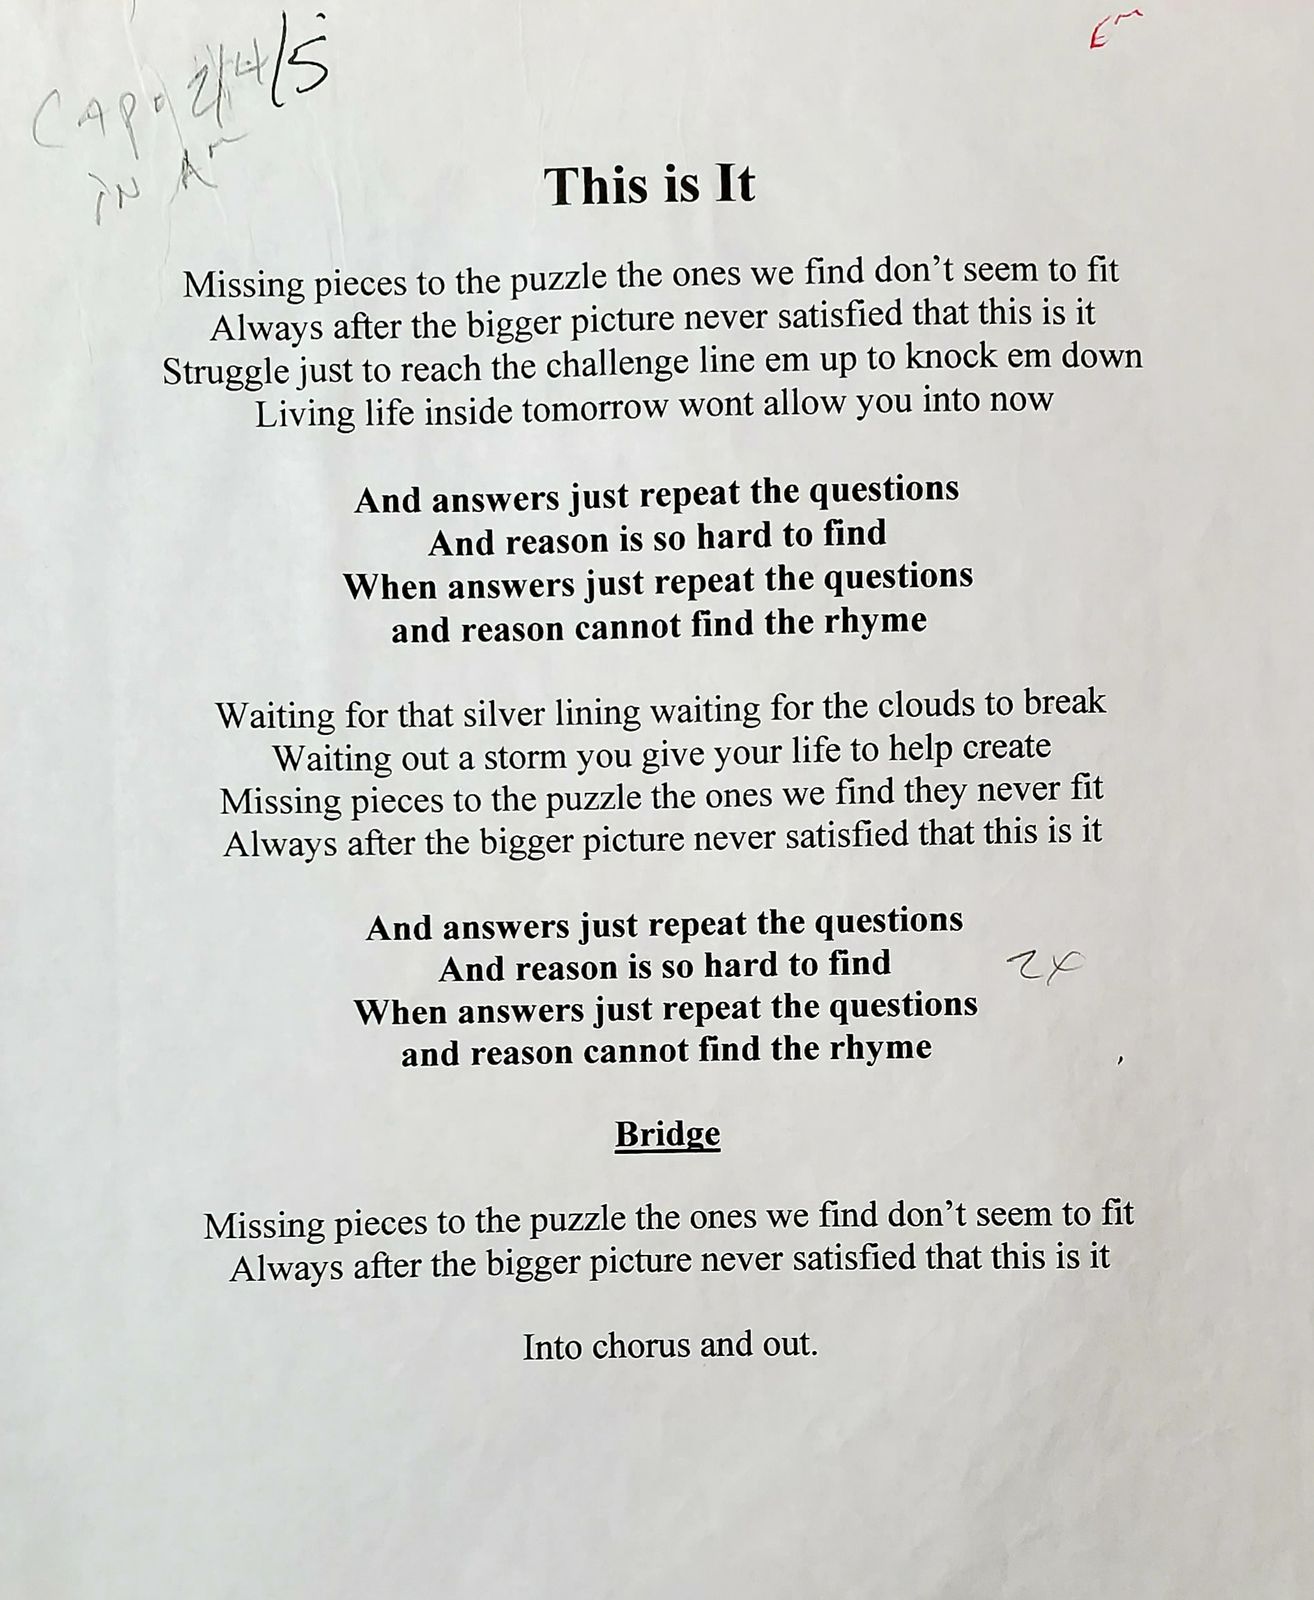 CAPO 2/4/5
Em
IN Am
This is It
Missing pieces to the puzzle the ones we find don’t seem to fit
Always after the bigger picture never satisfied that this is it
Struggle just to reach the challenge line em up to knock em down
Living life inside tomorrow wont allow you into now
And answers just repeat the questions
And reason is so hard to find
When answers just repeat the questions
and reason cannot find the rhyme
Waiting for that silver lining waiting for the clouds to break
Waiting out a storm you give your life to help create
Missing pieces to the puzzle the ones we find they never fit
Always after the bigger picture never satisfied that this is it
And answers just repeat the questions
And reason is so hard to find
2x
When answers just repeat the questions
and reason cannot find the rhyme
Bridge
Missing pieces to the puzzle the ones we find don’t seem to fit
Always after the bigger picture never satisfied that this is it
Into chorus and out.